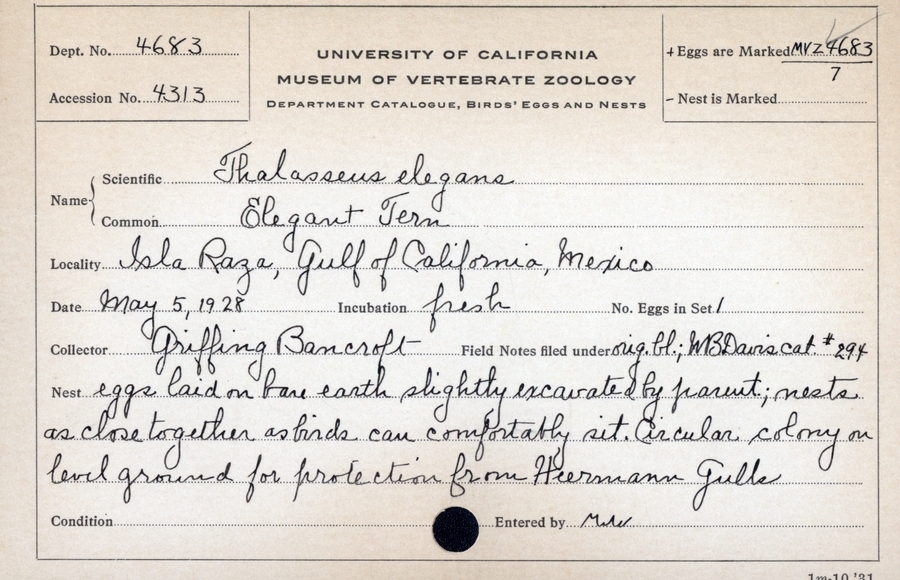 Dept. No. 4683
Accession No. 4313
UNIVERSITY OF CALIFORNIA
MUSEUM OF VERTEBRATE ZOOLOGY
DEPARTMENT CATALOGUE, BIRDS' EGGS AND NESTS
+ Eggs are Marked MVZ 4683
7
- Nest is Marked
Name
Scientific Thalasseus elegans
Common Elegant Tern
Locality Isla Raza, Gulf of California, Mexico
Date May 5, 1928 Incubation fresh No. Eggs in Set 1
Collector Griffing Bancroft Field Notes filed under orig. bl.; WBDavis cat. #294
Nest eggs laid on bare earth slightly excavated by parent; nests
as close together as birds can comfortably sit. Circular colony on
level ground for protection from Heermann Gulls
Condition Entered by
1m-10,'31